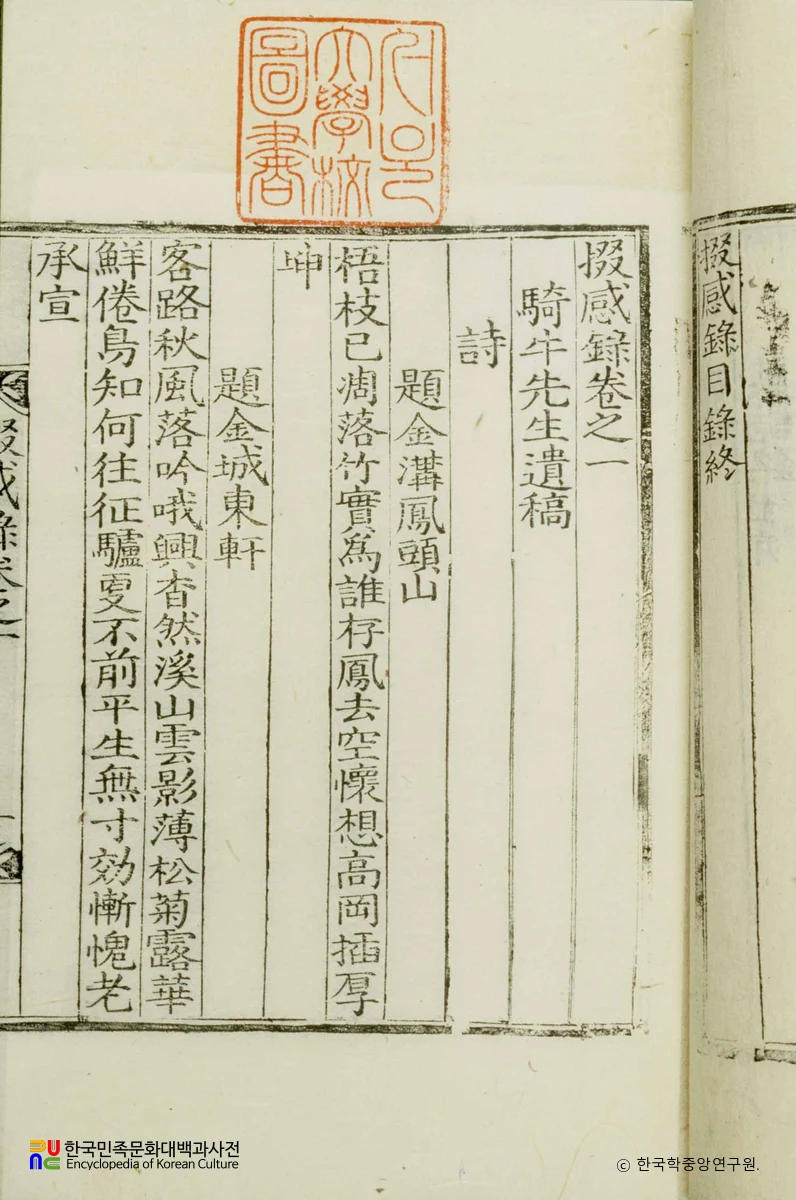 掇感錄目錄終
서울
大學校
圖書
掇感錄卷之一
騎牛先生遺稿
詩
題金溝鳳頭山
梧枝已凋落竹實爲誰存鳳去空懷想高岡揷厚
坤
題金城東軒
客路秋風落吟哦興杳然溪山雲影薄松菊露華
鮮倦鳥知何往征驢更不前平生無寸効慚愧老
承宣
掇感錄卷之一
한국민족문화대백과사전
Encyclopedia of Korean Culture
© 한국학중앙연구원.